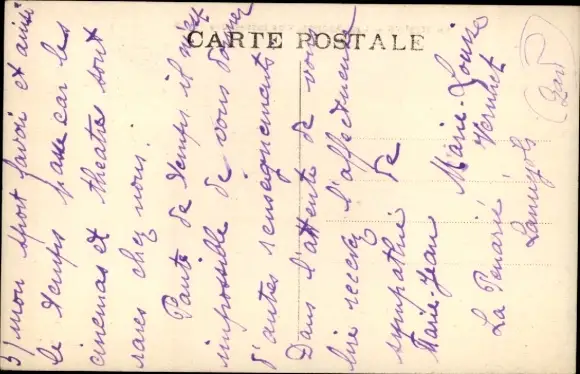 CARTE POSTALE
3) mon sport favori et ainsi
le temps passe car les
cinemas et theatres sont
rares chez nous.
Faute de temps il m'est
impossible de vous donner
d'autres renseignements
Dans l'attente de vous
lire recevez l'affectueuse
sympathie de
Marie-Jean
Marie-Louise
Vernhet
La Penarié
Lanuéjols
(Gard)